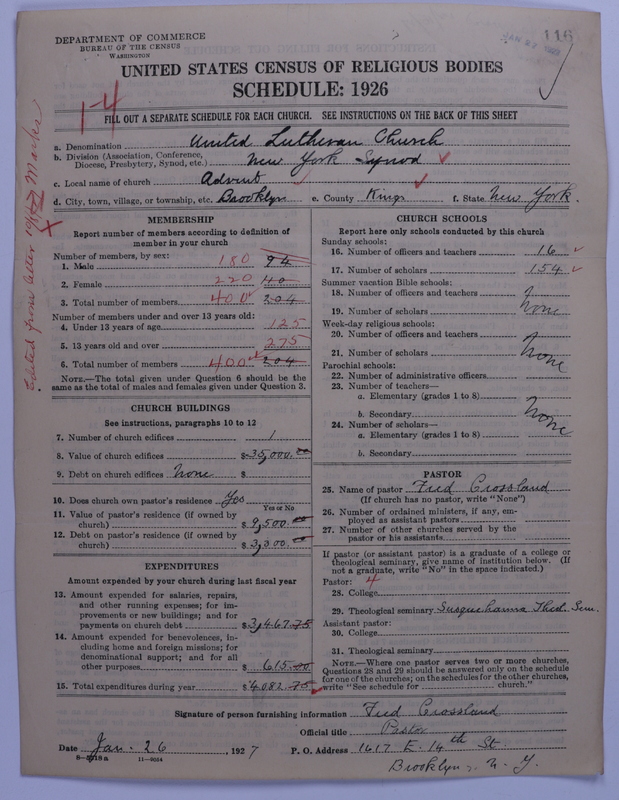 DEPARTMENT OF COMMERCE
BUREAU OF THE CENSUS
WASHINGTON
116
JAN 27
UNITED STATES CENSUS OF RELIGIOUS BODIES
SCHEDULE: 1926
1-4
FILL OUT A SEPARATE SCHEDULE FOR EACH CHURCH. SEE INSTRUCTIONS ON THE BACK OF THIS SHEET
a. Denomination United Lutheran Church
b. Division (Association, Conference, Diocese, Presbytery, Synod, etc.) New York Synod
c. Local name of church Advent
d. City, town, village, or township, etc. Brooklyn e. County Kings f. State New York.
Edited from letter
MEMBERSHIP
Report number of members according to definition of
member in your church
Number of members, by sex:
1. Male 180 94
2. Female 220
3. Total number of members 400 204
Number of members under and over 13 years old:
4. Under 13 years of age 125
5. 13 years old and over 275
6. Total number of members 400 204
NOTE.—The total given under Question 6 should be the
same as the total of males and females given under Question 3.
CHURCH BUILDINGS
See instructions, paragraphs 10 to 12
7. Number of church edifices 1
8. Value of church edifices $35,000.00
9. Debt on church edifices None $
10. Does church own pastor's residence Yes
Yes or No
11. Value of pastor's residence (if owned by
church) $9,500.00
12. Debt on pastor's residence (if owned by
church) $3,300.00
EXPENDITURES
Amount expended by your church during last fiscal year
13. Amount expended for salaries, repairs,
and other running expenses; for im-
provements or new buildings; and for
payments on church debt $3,467.75
14. Amount expended for benevolences, in-
cluding home and foreign missions; for
denominational support; and for all
other purposes $615.00
15. Total expenditures during year $4082.75
CHURCH SCHOOLS
Report here only schools conducted by this church
Sunday schools:
16. Number of officers and teachers 16
17. Number of scholars 154
Summer vacation Bible schools:
18. Number of officers and teachers
19. Number of scholars None
Week-day religious schools:
20. Number of officers and teachers
21. Number of scholars None
Parochial schools:
22. Number of administrative officers
23. Number of teachers—
a. Elementary (grades 1 to 8)
b. Secondary None
24. Number of scholars—
a. Elementary (grades 1 to 8)
b. Secondary
PASTOR
25. Name of pastor Fred Crossland
(If church has no pastor, write "None")
26. Number of ordained ministers, if any, em-
ployed as assistant pastors
27. Number of other churches served by the
pastor or his assistants
If pastor (or assistant pastor) is a graduate of a college or
theological seminary, give name of institution below. (If
not a graduate, write "No" in the space indicated.)
Pastor: 4
28. College
29. Theological seminary Susquehanna Theol. Sem.
Assistant pastor:
30. College
31. Theological seminary
NOTE.—Where one pastor serves two or more churches,
Questions 28 and 29 should be answered only on the schedule
for one of the churches; on the schedules for the other churches,
write "See schedule for church."
Signature of person furnishing information Fred Crossland
Official title Pastor
Date Jan. 26, 1927 P. O. Address 1617 E. 14th St.
Brooklyn, N. Y.
11—9034